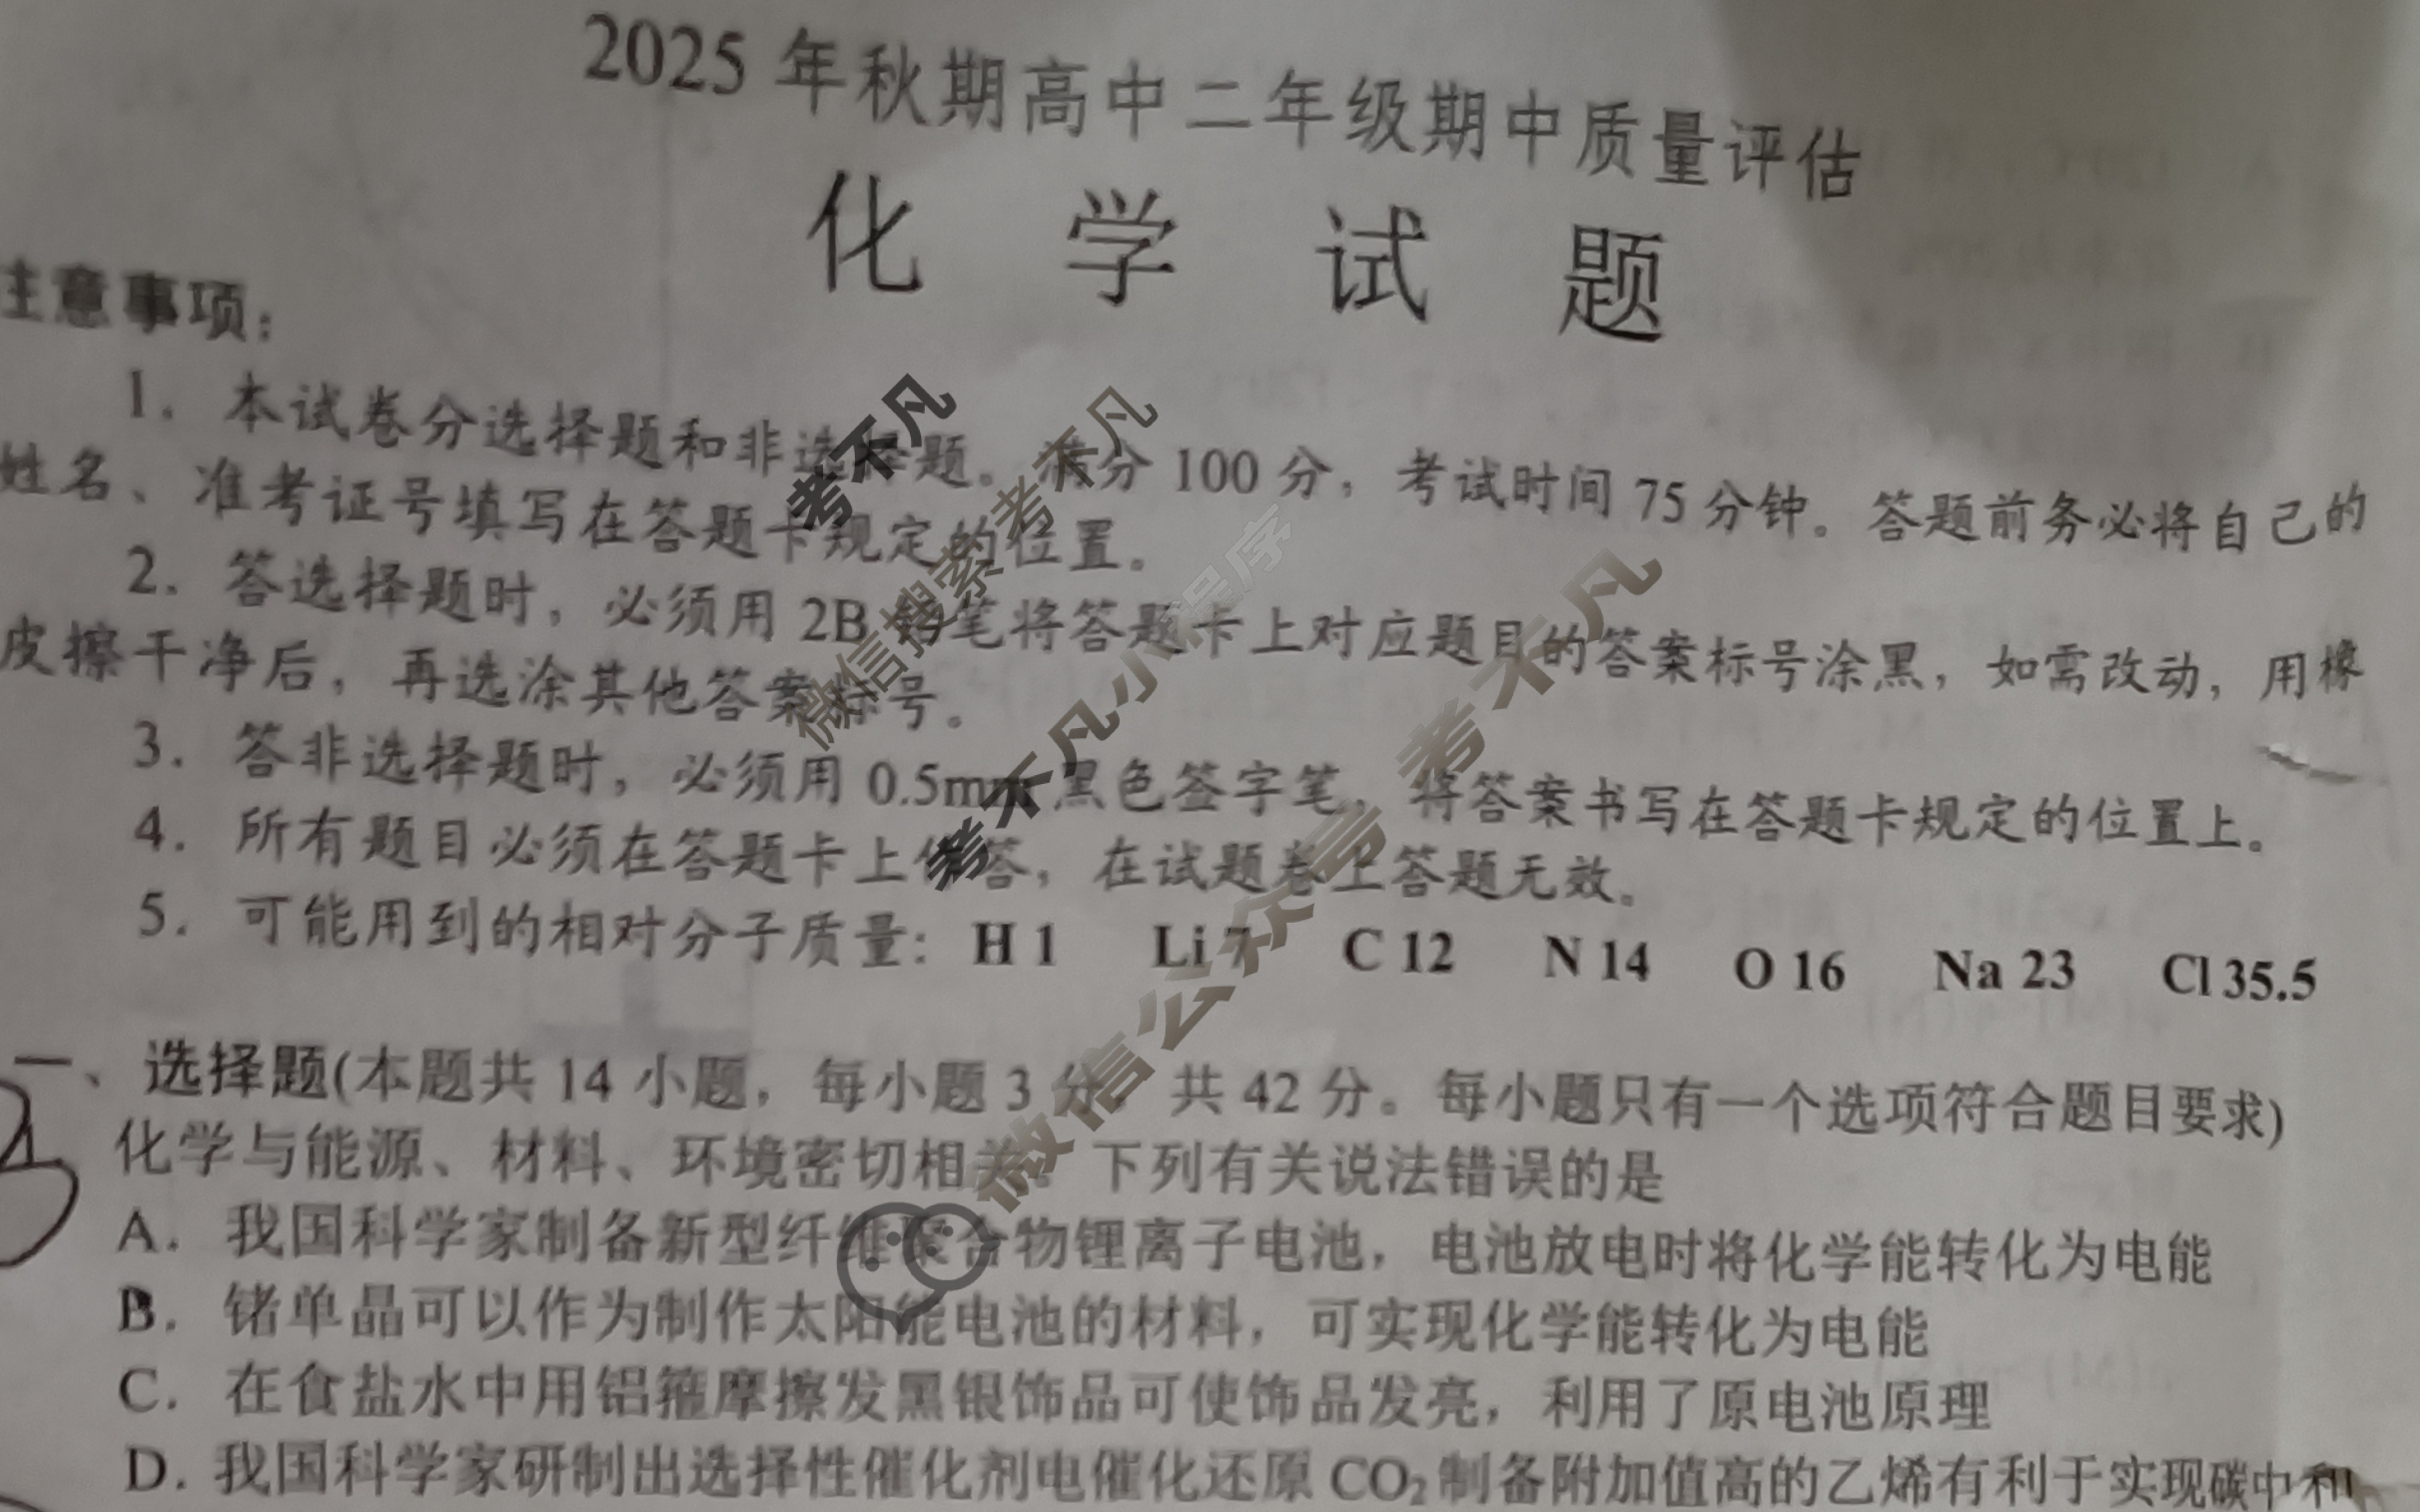 2025 年秋期高中二年级期中质量评估
化 学 试 题
注意事项：
1. 本试卷分选择题和非选择题。满分 100 分，考试时间 75 分钟。答题前务必将自己的
姓名、准考证号填写在答题卡规定的位置。
2. 答选择题时，必须用 2B 铅笔将答题卡上对应题目的答案标号涂黑，如需改动，用橡
皮擦干净后，再选涂其他答案标号。
3. 答非选择题时，必须用 0.5mm 黑色签字笔，将答案书写在答题卡规定的位置上。
4. 所有题目必须在答题卡上作答，在试题卷上答题无效。
5. 可能用到的相对分子质量：H 1 Li 7 C 12 N 14 O 16 Na 23 Cl 35.5
一、选择题(本题共 14 小题，每小题 3 分，共 42 分。每小题只有一个选项符合题目要求)
化学与能源、材料、环境密切相关。下列有关说法错误的是
A. 我国科学家制备新型纤维聚合物锂离子电池，电池放电时将化学能转化为电能
B. 锗单晶可以作为制作太阳能电池的材料，可实现化学能转化为电能
C. 在食盐水中用铝箍摩擦发黑银饰品可使饰品发亮，利用了原电池原理
D. 我国科学家研制出选择性催化剂电催化还原 CO₂ 制备附加值高的乙烯有利于实现碳中和
考不凡
微信搜索 考不凡
考不凡小程序
微信公众号 考不凡